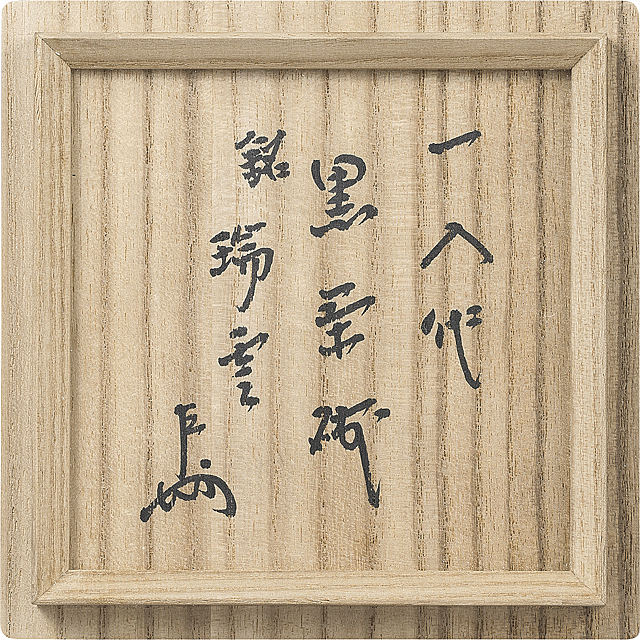 一入作
黒茶碗
銘 瑞雲